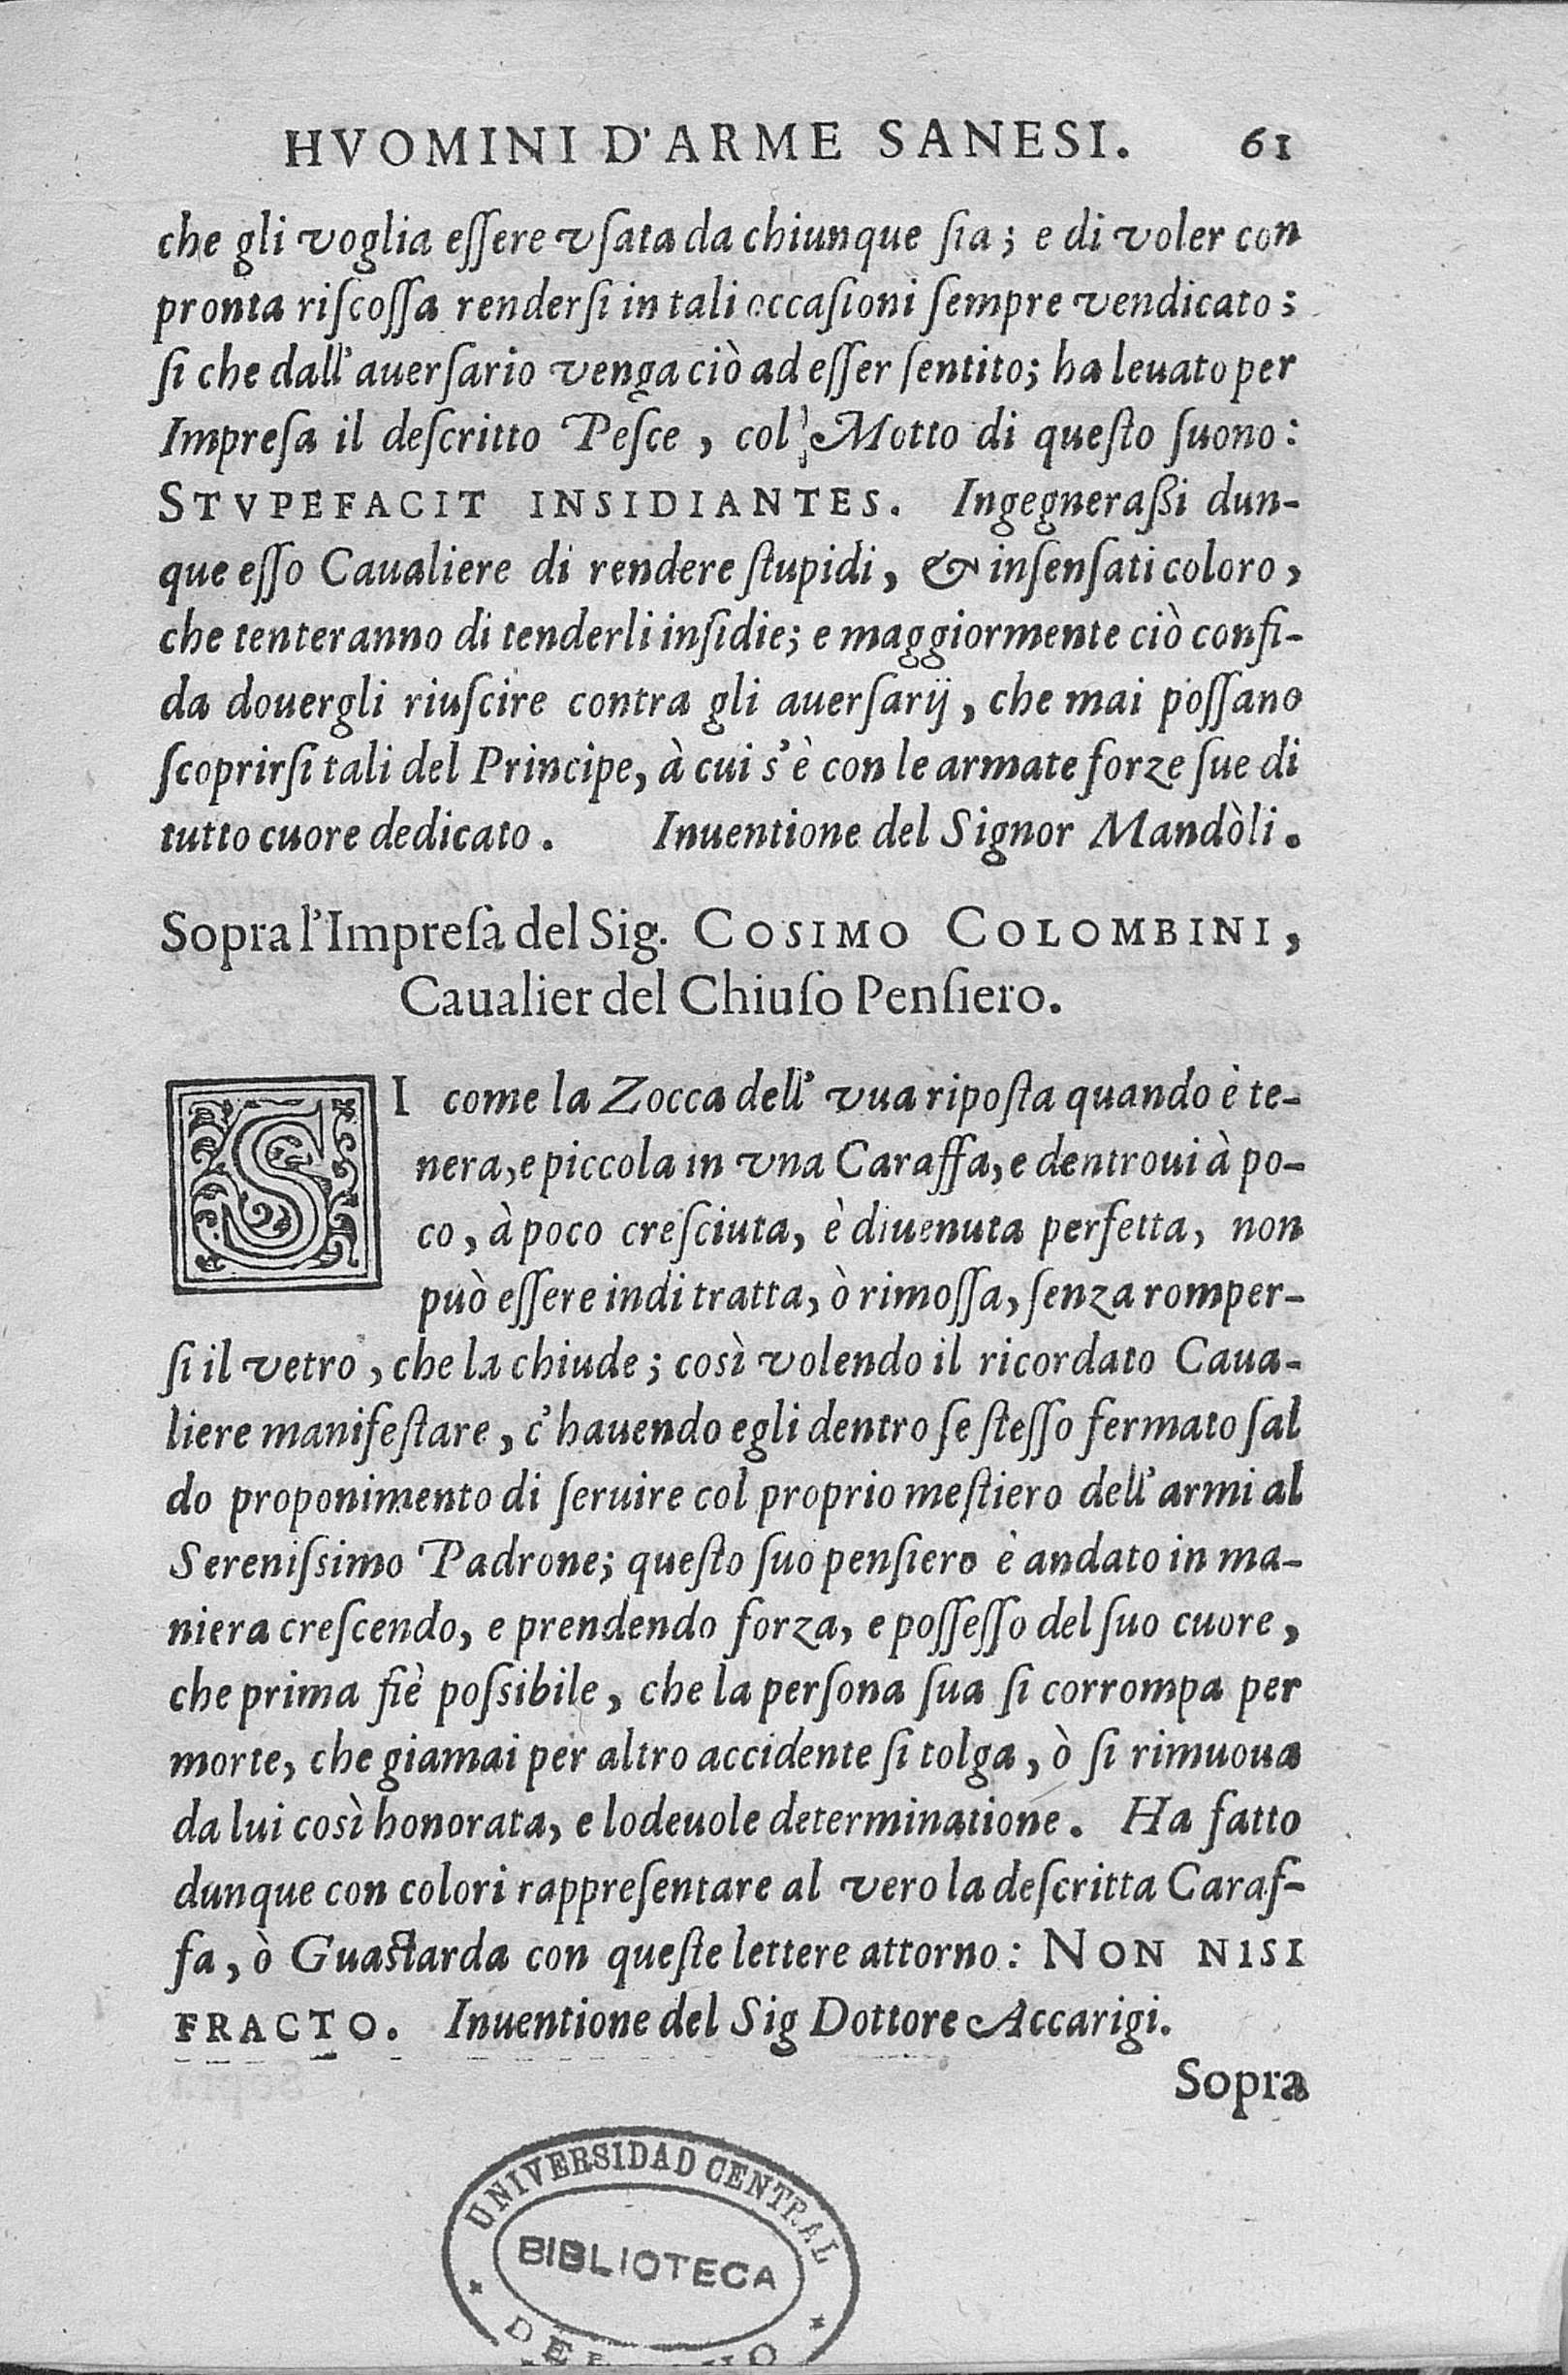 HVOMINI D'ARME SANESI. 61
che gli voglia eſſere vſata da chiunque ſia; e di voler con
pronta riſcoſſa renderſi in tali occaſioni ſempre vendicato;
ſi che dall'auerſario venga ciò ad eſſer ſentito; ha leuato per
Impreſa il deſcritto Peſce, col Motto di queſto ſuono:
STVPEFACIT INSIDIANTES. Ingegneraßi dun-
que eſſo Caualiere di rendere ſtupidi, & inſenſati coloro,
che tenteranno di tenderli inſidie; e maggiormente ciò confi-
da douergli riuſcire contra gli auerſarij, che mai poſſano
ſcoprirſi tali del Principe, à cui s'è con le armate forze ſue di
tutto cuore dedicato. Inuentione del Signor Mandòli.
Sopra l'Impreſa del Sig. COSIMO COLOMBINI,
Caualier del Chiuſo Penſiero.
SI come la Zocca dell' vua ripoſta quando è te-
nera, e piccola in vna Caraffa, e dentroui à po-
co, à poco creſciuta, è diuenuta perfetta, non
può eſſere indi tratta, ò rimoſſa, ſenza romper-
ſi il vetro, che la chiude; così volendo il ricordato Caua-
liere manifeſtare, c'hauendo egli dentro ſe ſteſſo fermato ſal
do proponimento di ſeruire col proprio meſtiero dell'armi al
Sereniſsimo Padrone; queſto ſuo penſiero è andato in ma-
niera creſcendo, e prendendo forza, e poſſeſſo del ſuo cuore,
che prima fiè poſsibile, che la perſona ſua ſi corrompa per
morte, che giamai per altro accidente ſi tolga, ò ſi rimuoua
da lui così honorata, e lodeuole determinatione. Ha fatto
dunque con colori rappreſentare al vero la deſcritta Caraf-
fa, ò Guaſtarda con queſte lettere attorno: NON NISI
FRACTO. Inuentione del Sig Dottore Accarigi.
Sopra
UNIVERSIDAD CENTRAL
BIBLIOTECA